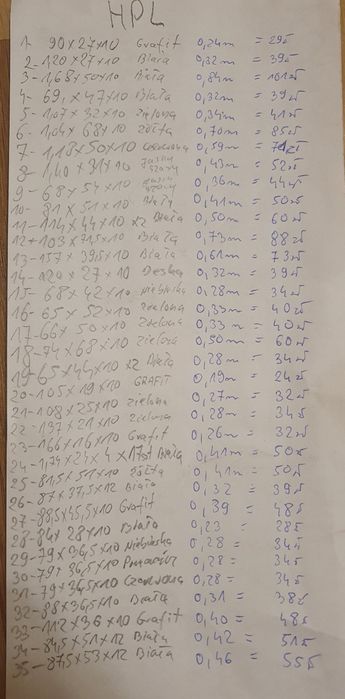 HPL
1- 90x27x10 Grafit 0,24m = 29zł
2-120x27x10 Biała 0,32m = 39zł
3-1,68x50x10 Biała 0,84m = 101zł
4- 69,x47x10 Biała 0,32m = 39zł
5- 1,07x32x10 zielona 0,34m = 41zł
6- 1,04x68x10 żółta 0,70m = 85zł
7- 1,18x50x10 czerwona 0,59m = 71zł
8- 1,40x31x10 jasny szary 0,43m = 52zł
9- 68x54x10 jasny szary 0,36m = 44zł
10- 81x51x10 Biały 0,41m = 50zł
11-114x44x10 x2 Biała 0,50m = 60zł
12+103x71,5x10 Biała 0,73m = 88zł
13-157x39,5x10 Biała 0,61m = 73zł
14-120x27x10 Deska 0,32m = 39zł
15- 68x42x10 niebieska 0,28m = 34zł
16- 65x52x10 zielona 0,33m = 40zł
17-66x50x10 zielona 0,33m = 40zł
18-74x68x10 zielona 0,50m = 60zł
19-65x44x10 x2 Biała 0,28m = 34zł
20-105x19x10 GRAFIT 0,19m = 24zł
21-108x25x10 zielona 0,27m = 32zł
22-137x21x10 zielona 0,28m = 34zł
23-166x16x10 Grafit 0,26m = 32zł
24-1,74x24x4x17st Biała 0,41m = 50zł
25-81,5x51x10 żółta 0,41m = 50zł
26-87x37,5x12 Biała 0,32 = 39zł
27-88,5x45,5x10 Grafit 0,39 = 48zł
28-84x28x10 Biała 0,23 = 28zł
29-79x36,5x10 Niebieska 0,28 = 34zł
30-79x36,5x10 0,28 = 34zł
31-79x36,5x10 Czerwona 0,28 = 34zł
32-88x36,5x10 Biała 0,31 = 38zł
33-112x36x10 Grafit 0,40 = 48zł
34-84,5x51x12 Biała 0,42 = 51zł
35-87,5x53x12 Biała 0,46 = 55zł